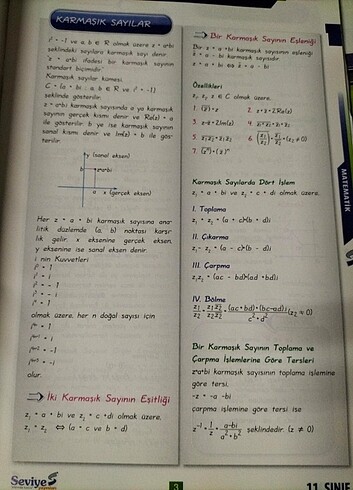 KARMAŞIK SAYILAR
i² = -1 ve a, b ∈ R olmak üzere z = a+bi
şeklindeki sayılara karmaşık sayı denir.
'z = a+bi ifadesi bir karmaşık sayının
standart biçimidir.'
Karmaşık sayılar kümesi:
C = {a + bi : a, b ∈ R ve i² = -1}
şeklinde gösterilir.
z = a+bi karmaşık sayısında a ya karmaşık
sayının gerçek kısmı denir ve Re(z) = a
ile gösterilir. b ye ise karmaşık sayının
sanal kısmı denir ve Im(z) = b ile gös-
terilir.
y (sanal eksen)
b
z=a+bi
a
x (gerçek eksen)
Her z = a + bi karmaşık sayısına ana-
litik düzlemde (a, b) noktası karşı-
lık gelir. x eksenine gerçek eksen,
y eksenine ise sanal eksen denir.
i nin Kuvvetleri
i⁰ = 1
i¹ = i
i² = -1
i³ = -i
i⁴ = 1
olmak üzere, her n doğal sayısı için
i⁴ⁿ = 1
i⁴ⁿ⁺¹ = i
i⁴ⁿ⁺² = -1
i⁴ⁿ⁺³ = -i
olur.
İki Karmaşık Sayının Eşitliği
z₁ = a + bi ve z₂ = c + di olmak üzere,
z₁ = z₂ ⇔ (a = c ve b = d)
Bir Karmaşık Sayının Eşleniği
Bir z = a + bi karmaşık sayısının eşleniği
z̄ = a - bi karmaşık sayısıdır.
z = a + bi ⇔ z̄ = a - bi
Özellikleri
z₁, z₂, z ∈ C olmak üzere.
1.
2. z+z̄ = 2.Re(z)
3. z-z̄ = 2.Im(z)
4.
5.
6. (z₂ ≠ 0)
7.
Karmaşık Sayılarda Dört İşlem
z₁ = a + bi ve z₂ = c + di olmak üzere.
I. Toplama
z₁ + z₂ = (a + c)+(b + d)i
II. Çıkarma
z₁ - z₂ = (a - c)+(b - d)i
III. Çarpma
z₁z₂ = (ac - bd)+(ad + bc)i
IV. Bölme
z₁/z₂ = z₁z̄₂/z₂z̄₂ = (ac+bd)+(bc-ad)i/c²+d² (z₂ ≠ 0)
Bir Karmaşık Sayının Toplama ve
Çarpma İşlemlerine Göre Tersleri
z=a+bi karmaşık sayısının toplama işlemine
göre tersi,
-z = -a - bi
çarpma işlemine göre tersi ise
z⁻¹ = 1/z = a-bi/a²+b² şeklindedir. (z ≠ 0)
MATEMATİK
Seviye
3
11. SINIF